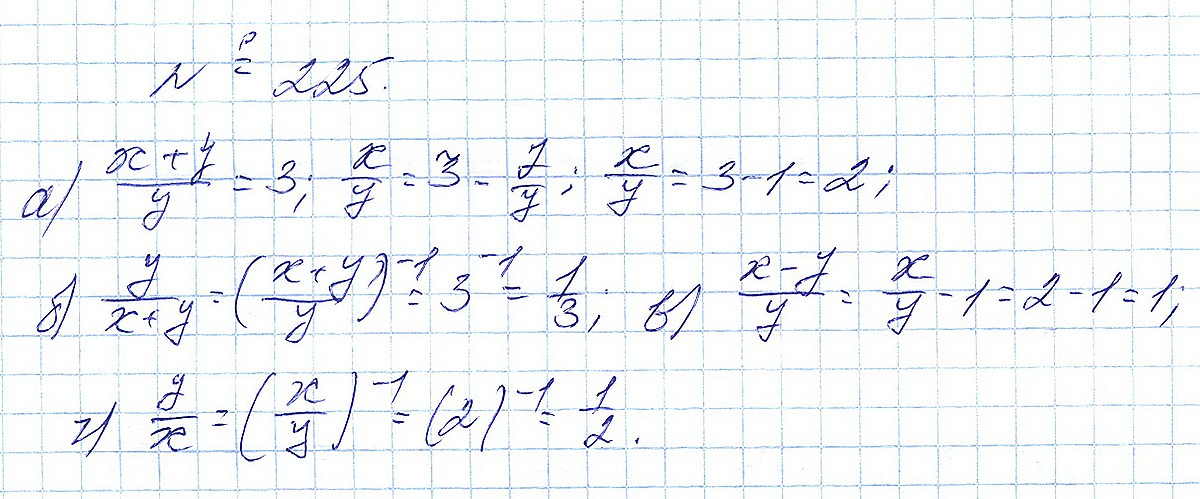 № 225.
а) (x+y)/y = 3; x/y = 3 - y/y; x/y = 3-1=2;
б) y/(x+y) = ((x+y)/y)⁻¹ = 3⁻¹ = 1/3; в) (x-y)/y = x/y - 1 = 2-1=1;
г) y/x = (x/y)⁻¹ = (2)⁻¹ = 1/2.